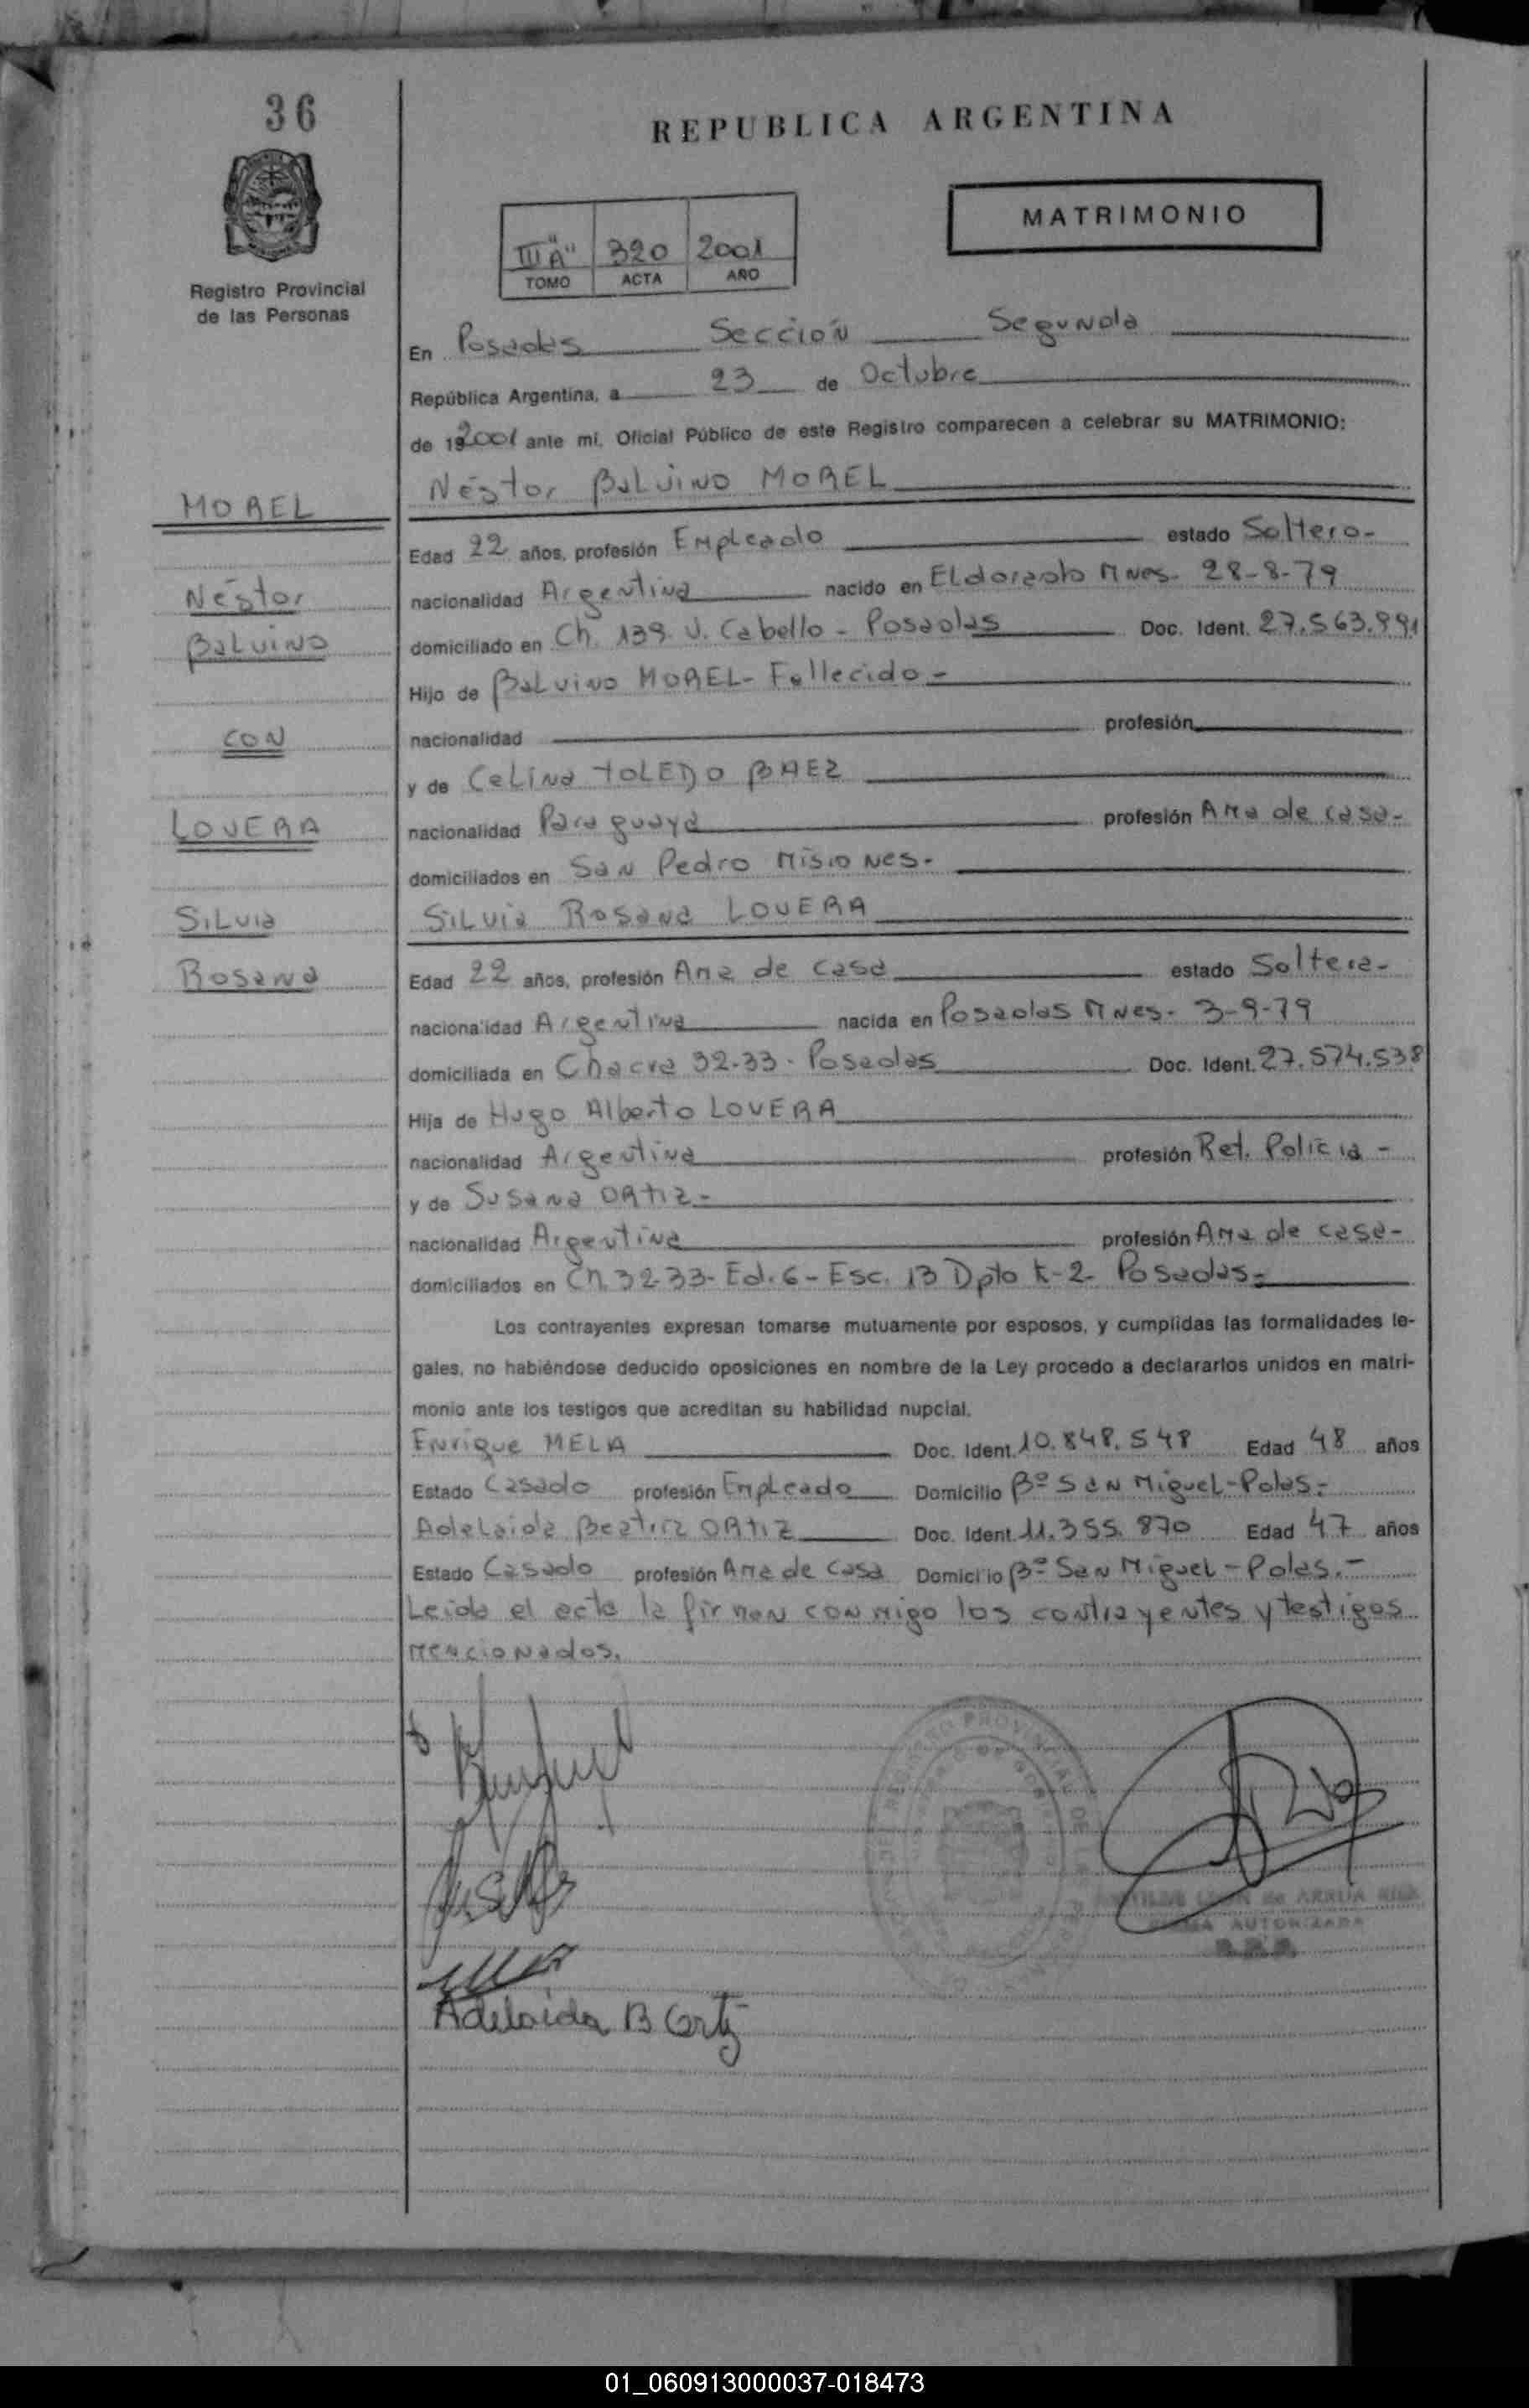 36
REPUBLICA ARGENTINA
MATRIMONIO
III "A" 320 2001
TOMO ACTA AÑO
Registro Provincial
de las Personas
En Posadas Sección Segunda
República Argentina, a 23 de Octubre
de 192001 ante mí, Oficial Público de este Registro comparecen a celebrar su MATRIMONIO:
MOREL
Néstor
Balvino
CON
LOVERA
Silvia
Rosana
Néstor Balvino MOREL
Edad 22 años, profesión Empleado estado Soltero-
nacionalidad Argentina nacido en Eldorado Mnes. 28-8-79
domiciliado en Ch. 139 V. Cabello - Posadas Doc. Ident. 27.563.991
Hijo de Balvino MOREL- Fallecido -
nacionalidad profesión
y de Celina TOLEDO BAEZ
nacionalidad Paraguaya profesión Ama de casa-
domiciliados en San Pedro Misiones-
Silvia Rosana LOVERA
Edad 22 años, profesión Ama de casa estado Soltera-
nacionalidad Argentina nacida en Posadas Mnes- 3-9-79
domiciliada en Chacra 32-33- Posadas Doc. Ident. 27.574.538
Hija de Hugo Alberto LOVERA
nacionalidad Argentina profesión Ret. Policia -
y de Susana ORTIZ-
nacionalidad Argentina profesión Ama de casa-
domiciliados en Ch. 32-33- Ed. 6 - Esc. 13 Dpto K-2- Posadas-
Los contrayentes expresan tomarse mutuamente por esposos, y cumplidas las formalidades le-
gales, no habiéndose deducido oposiciones en nombre de la Ley procedo a declararlos unidos en matri-
monio ante los testigos que acreditan su habilidad nupcial.
Enrique MELA Doc. Ident. 10.848.548 Edad 48 años
Estado Casado profesión Empleado Domicilio Bº San Miguel-Pdas-
Adelaida Beatriz ORTIZ Doc. Ident. 11.355.870 Edad 47 años
Estado Casado profesión Ama de casa Domicilio Bº San Miguel - Pdas.-
Leida el acta la firman conmigo los contrayentes y testigos
mencionados.
REGISTRO PROVINCIAL DE
de ARRUA
FIRMA AUTORIZADA
Adelaida B Ortiz
01_060913000037-018473